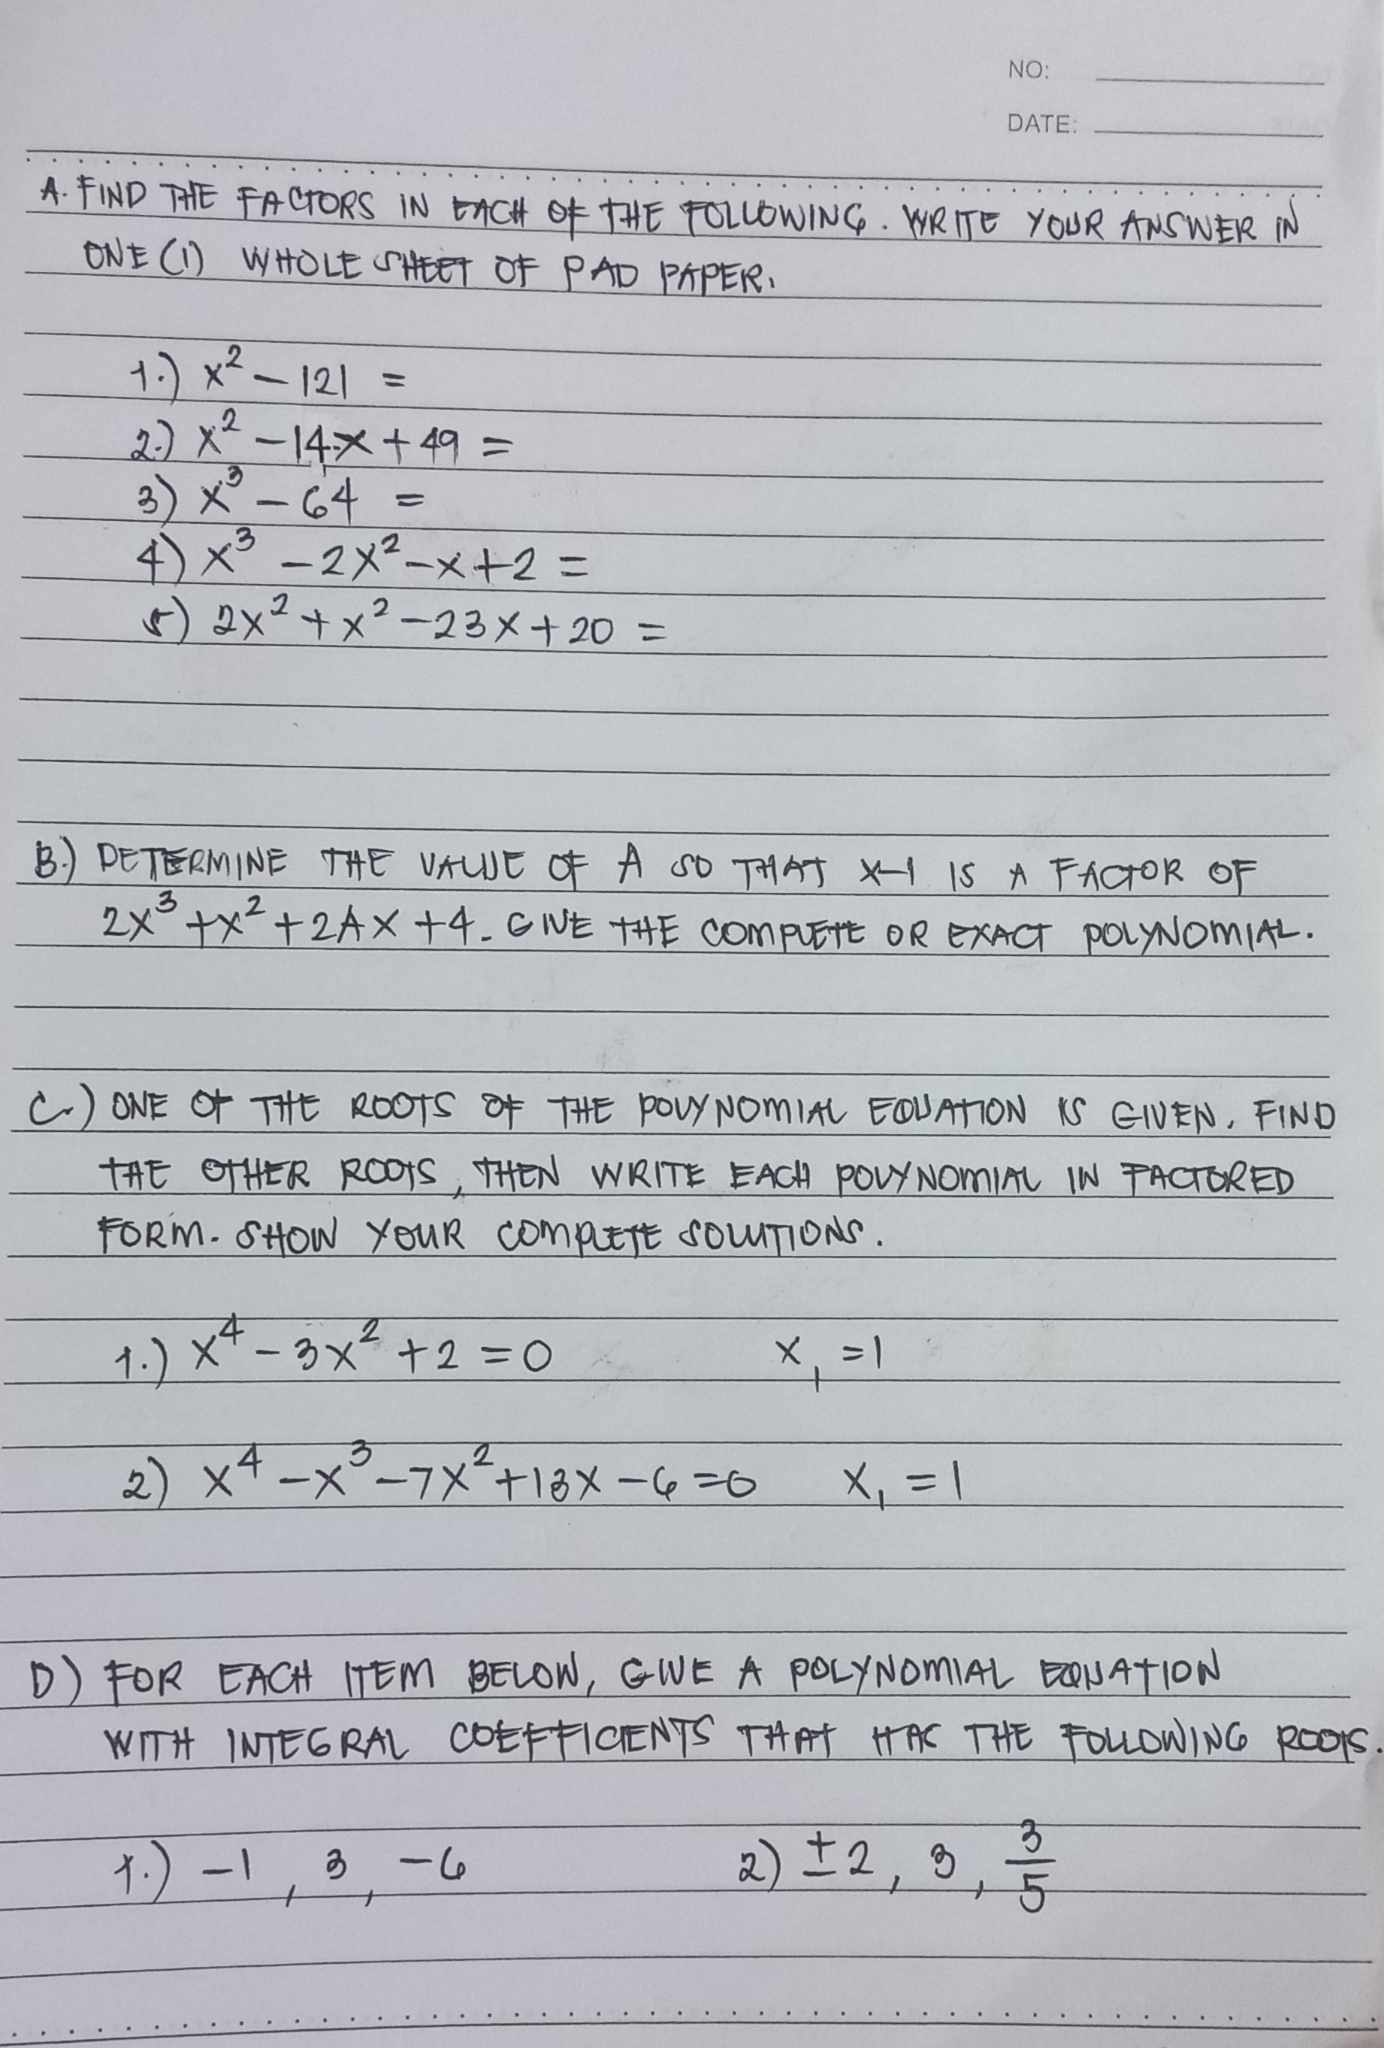 NO:
DATE:
A. FIND THE FACTORS IN EACH OF THE FOLLOWING. WRITE YOUR ANSWER IN
ONE (1) WHOLE SHEET OF PAD PAPER.
1.) x² - 121 =
2.) x² - 14x + 49 =
3) x³ - 64 =
4) x³ - 2x² - x + 2 =
5) 2x² + x² - 23x + 20 =
B.) DETERMINE THE VALUE OF A SO THAT x-1 IS A FACTOR OF
2x³ + x² + 2Ax + 4. GIVE THE COMPLETE OR EXACT POLYNOMIAL.
C.) ONE OF THE ROOTS OF THE POLYNOMIAL EQUATION IS GIVEN. FIND
THE OTHER ROOTS, THEN WRITE EACH POLYNOMIAL IN FACTORED
FORM. SHOW YOUR COMPLETE SOLUTIONS.
1.) x⁴ - 3x² + 2 = 0 x₁ = 1
2) x⁴ - x³ - 7x² + 13x - 6 = 0 x₁ = 1
D) FOR EACH ITEM BELOW, GIVE A POLYNOMIAL EQUATION
WITH INTEGRAL COEFFICIENTS THAT HAS THE FOLLOWING ROOTS.
1.) -1, 3, -6 2) ±2, 3, 3/5